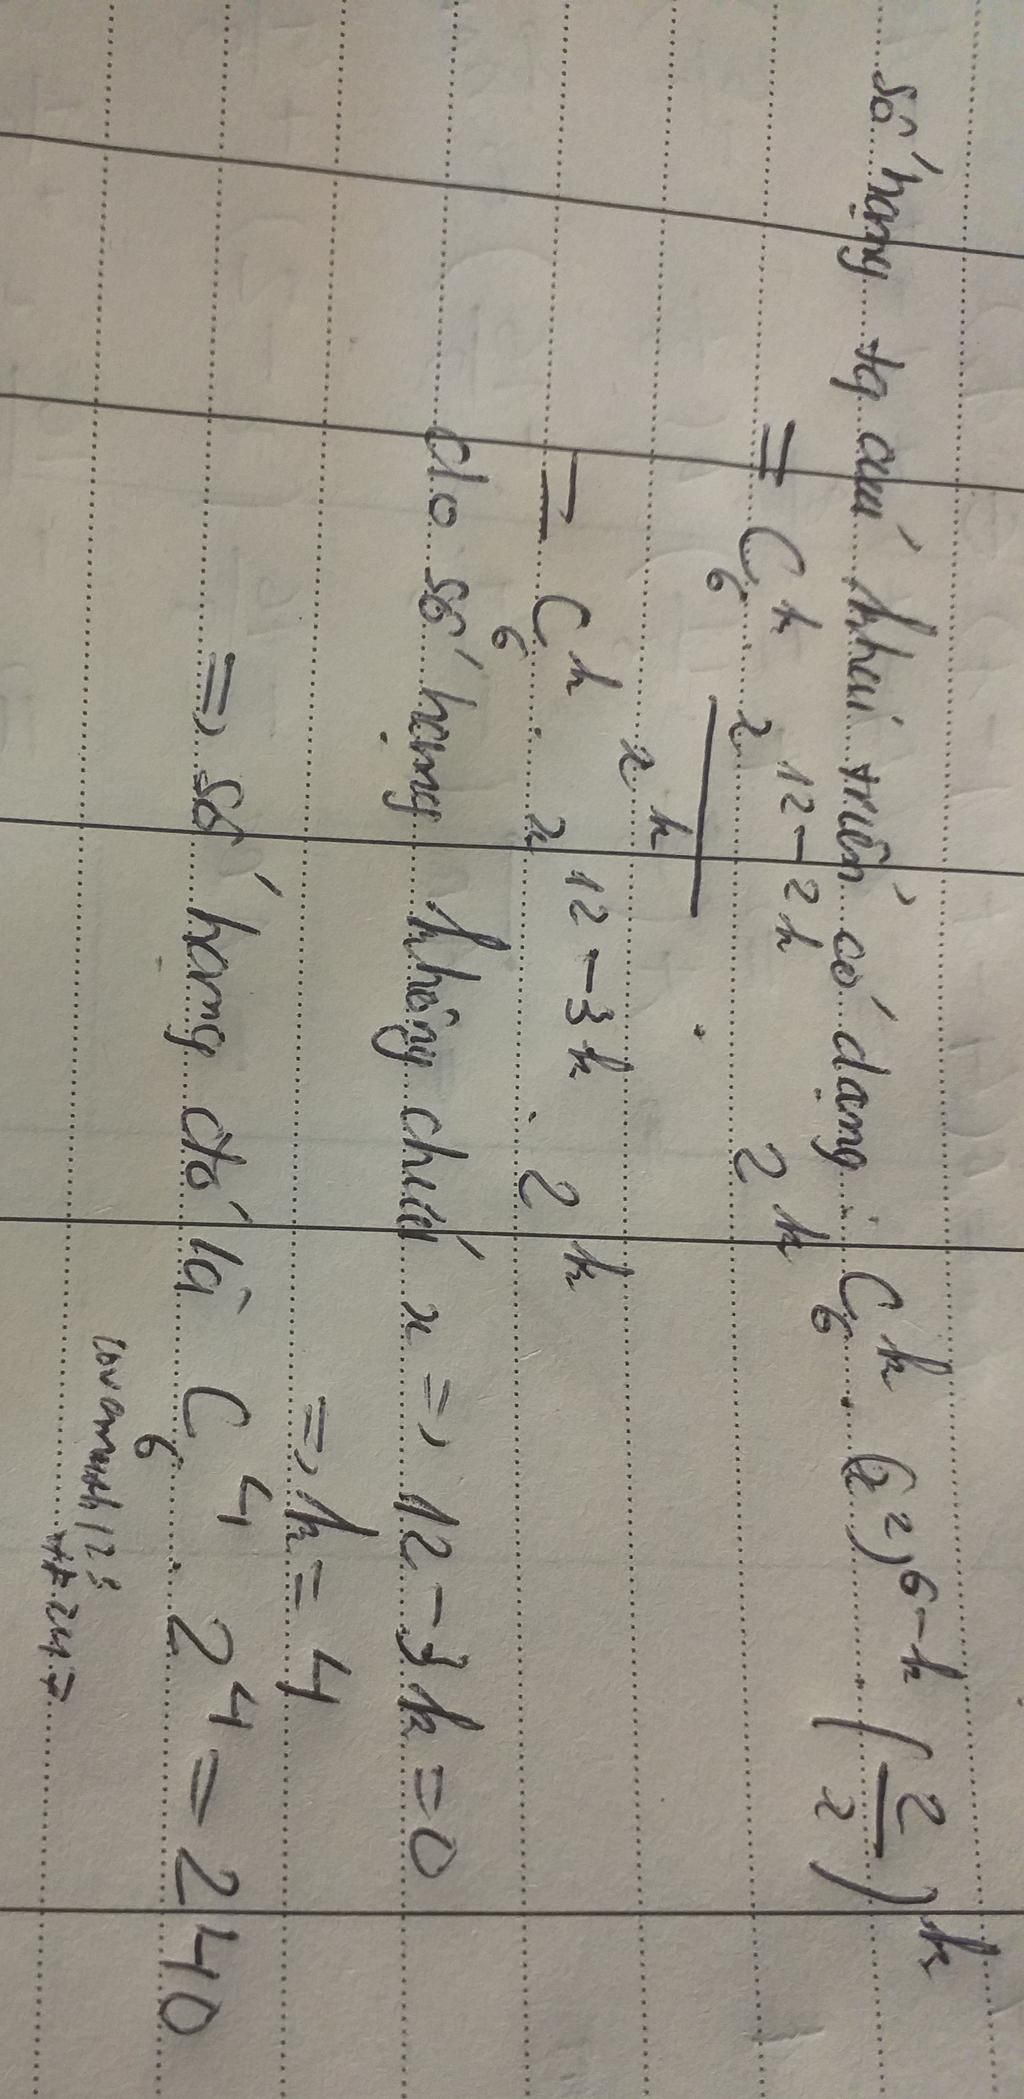 số hạng tq của khai triển có dạng: C₆ᵏ . (x²)⁶⁻ᵏ . (2/x)ᵏ
= C₆ᵏ . x¹²⁻²ᵏ/xᵏ . 2ᵏ
= C₆ᵏ . x¹²⁻³ᵏ . 2ᵏ
do số hạng không chứa x => 12 - 3k = 0
=> k = 4
=> số hạng đó là C₆⁴ . 2⁴ = 240